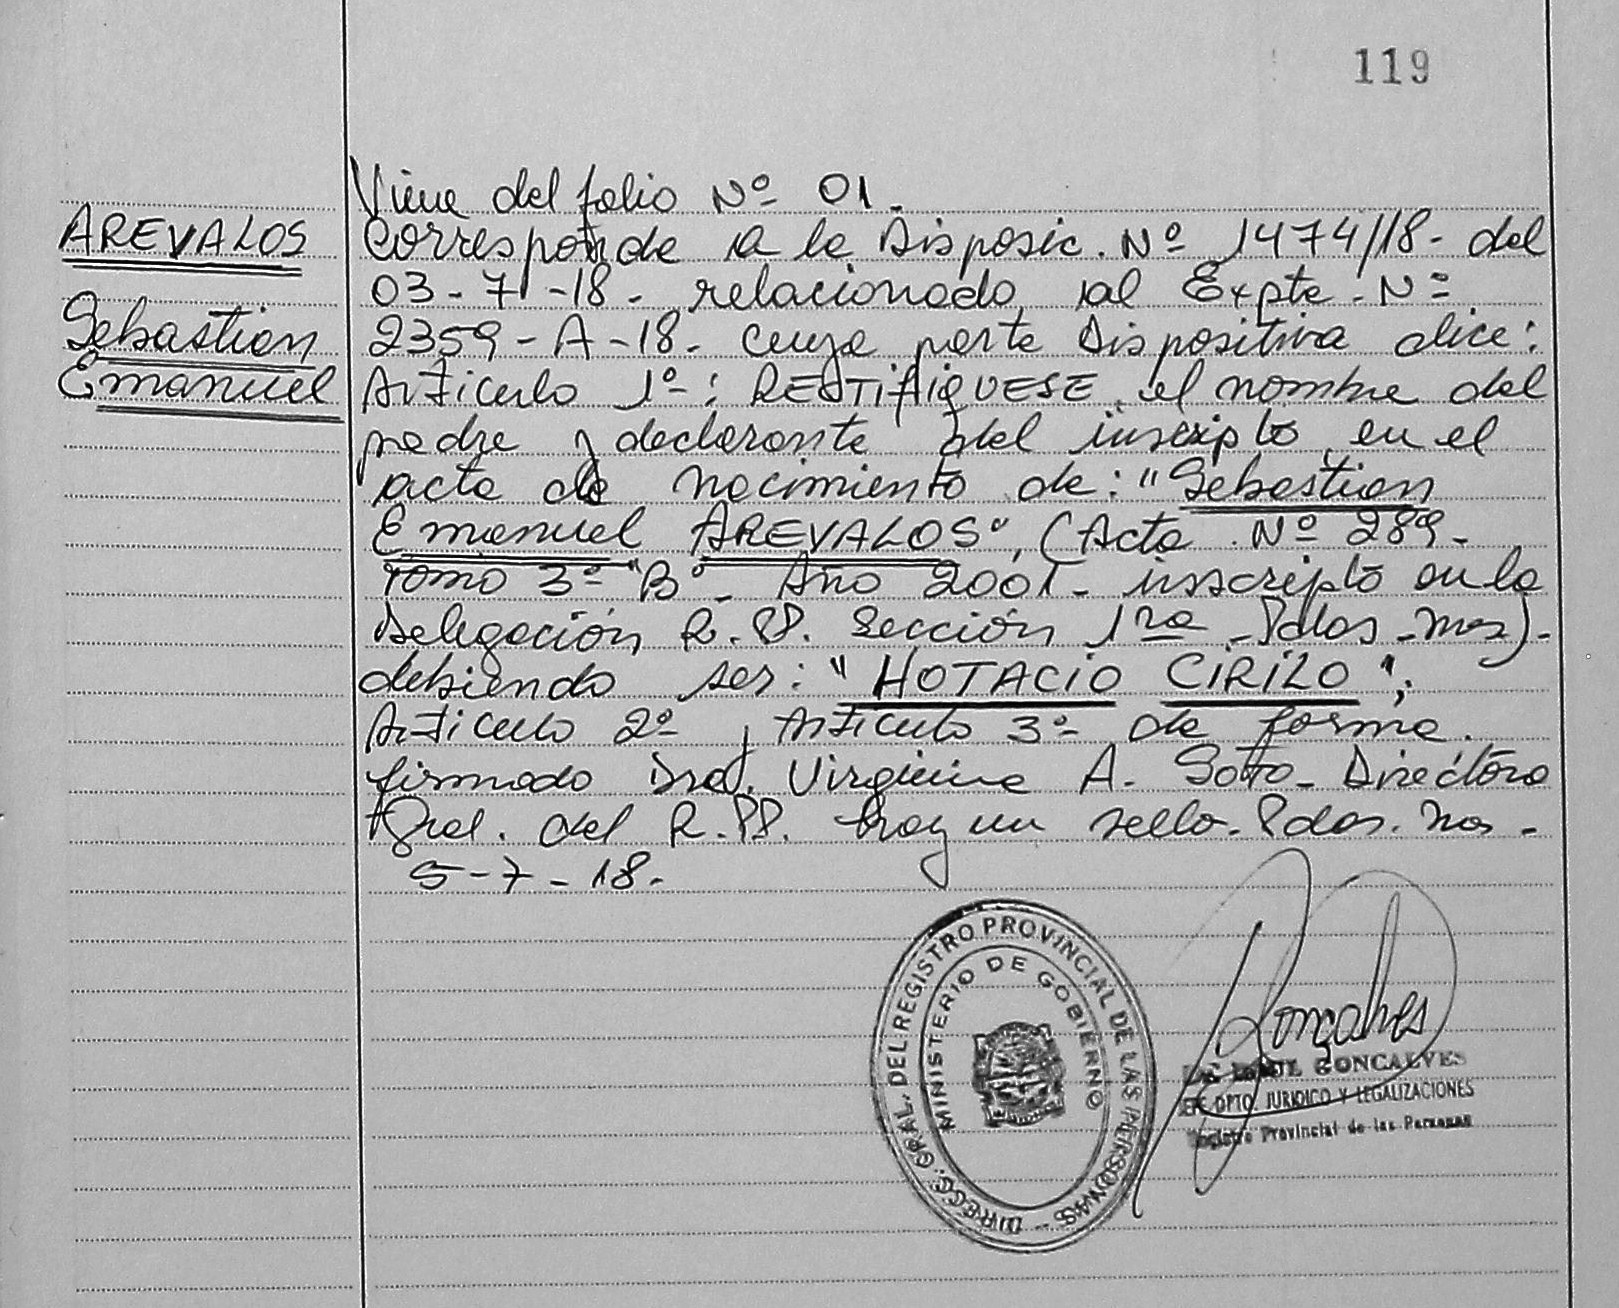 119
AREVALOS
Sebastian
Emanuel
Viene del folio Nº 01.
Corresponde a la Disposic. Nº 1474/18- del
03-7-18- relacionado al Expte. Nº
2359-A-18- cuya parte Dispositiva dice:
Articulo 1º: RECTIFIQUESE el nombre del
padre y declarante del inscripto en el
acta de nacimiento de: "Sebastian
Emanuel AREVALOS", (Acta Nº 289-
Tomo 3º "B" - Año 2001- inscripto en la
Delegación R.PP. Sección 1ra - Pdas - Mnes)-
debiendo ser: "HOTACIO CIRILO";
Articulo 2º y Articulo 3º de forma.
firmado Dra. Virginia A. Soto - Directora
Gral. del R.PP. hay un sello. Pdas. Mns -
5-7-18.
DIRECC. GRAL. DEL REGISTRO PROVINCIAL DE LAS PERSONAS
MINISTERIO DE GOBIERNO
Gonçalves
GONCALVES
DPTO JURIDICO Y LEGALIZACIONES
Registro Provincial de las Personas